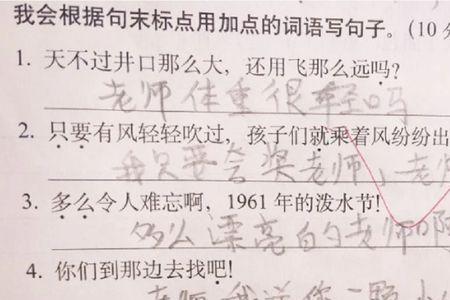 我会根据句末标点用加点的词语写句子。(10分
1. 天不过井口那么大，还用飞那么远吗？
老师体重很轻吗
2. 只要有风轻轻吹过，孩子们就乘着风纷纷出
我只要会奖老师，老师
3. 多么令人难忘啊，1961年的泼水节！
多么漂亮的老师啊
4. 你们到那边去找吧！
老师我送你一颗